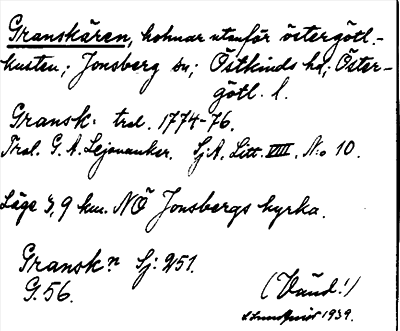 Granskären, holmar utanför östergötl.-
kusten; Jonsberg sn; Östkinds hd; Öster-
götl. l.
Gransk: tral. 1774-76.
Tral. G. A. Lejonanker. Sj.A. Litt. VIII. N:o 10.
Läge 3,9 km. NÖ Jonsbergs kyrka.
Gransk.n Sj: 251.
G. 56.
(Vänd!)
1939.